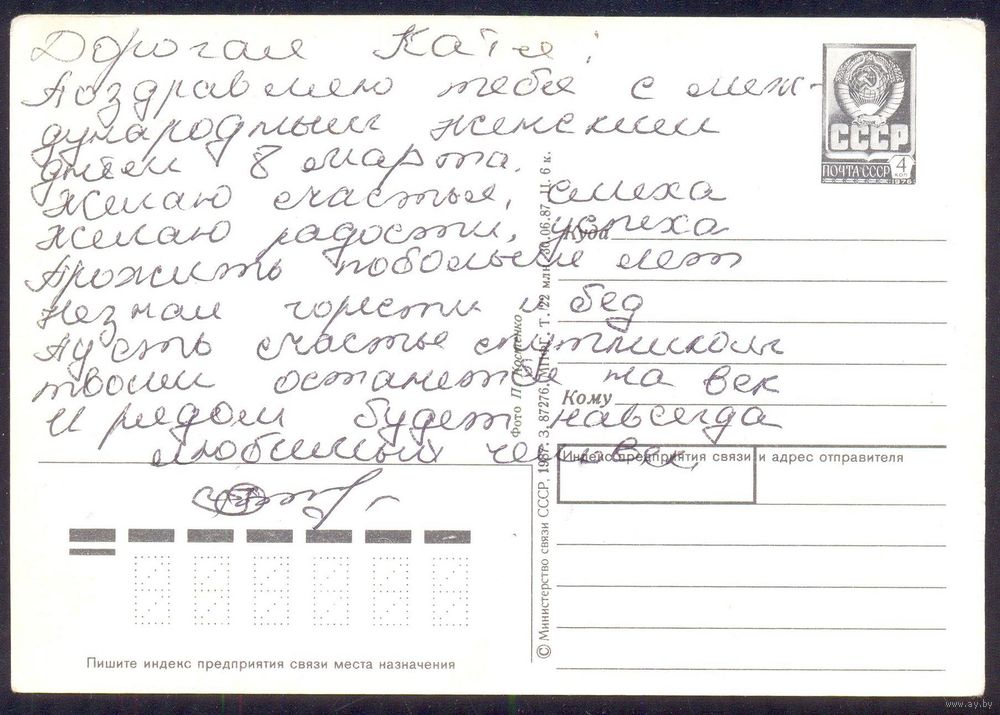 Дорогая Катя!
Поздравляю тебя с меж-
дународным женским
днем 8 марта.
Желаю счастья, смеха
Желаю радости, успеха
Прожить побольше лет
Незная горести и бед
Пусть счастье спутником
твоим останется на век
И рядом будет навсегда
любимый человек
СССР
ПОЧТА СССР
4
коп
1976
Куда
Кому
Индекс предприятия связи и адрес отправителя
Фото П. Костенко
© Министерство связи СССР, 1987. З. 87276. МПФГ. Т. 22 млн. 30.06.87. Ц. 6 к.
Пишите индекс предприятия связи места назначения
www.ay.by